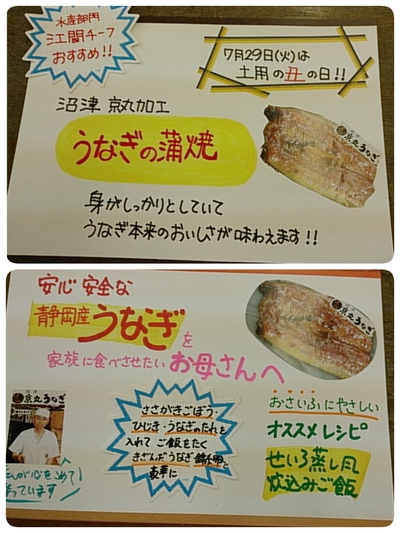 水産部門
江間チーフ
おすすめ!!
7月29日(火)は
土用の丑の日!!
沼津 京丸加工
うなぎの蒲焼
京丸うなぎ
身がしっかりとしていて
うなぎ本来のおいしさが味わえます!!
安心 安全な
静岡産うなぎを
家族に食べさせたい お母さんへ
京丸うなぎ
京丸うなぎ
私が心をこめて
作っています
ささがきごぼう・
ひじき・うなぎのたれを
入れて ご飯をたく
きざんだうなぎ
豪華に
おさいふにやさしい
オススメレシピ
せいろ蒸し風
炊込みご飯